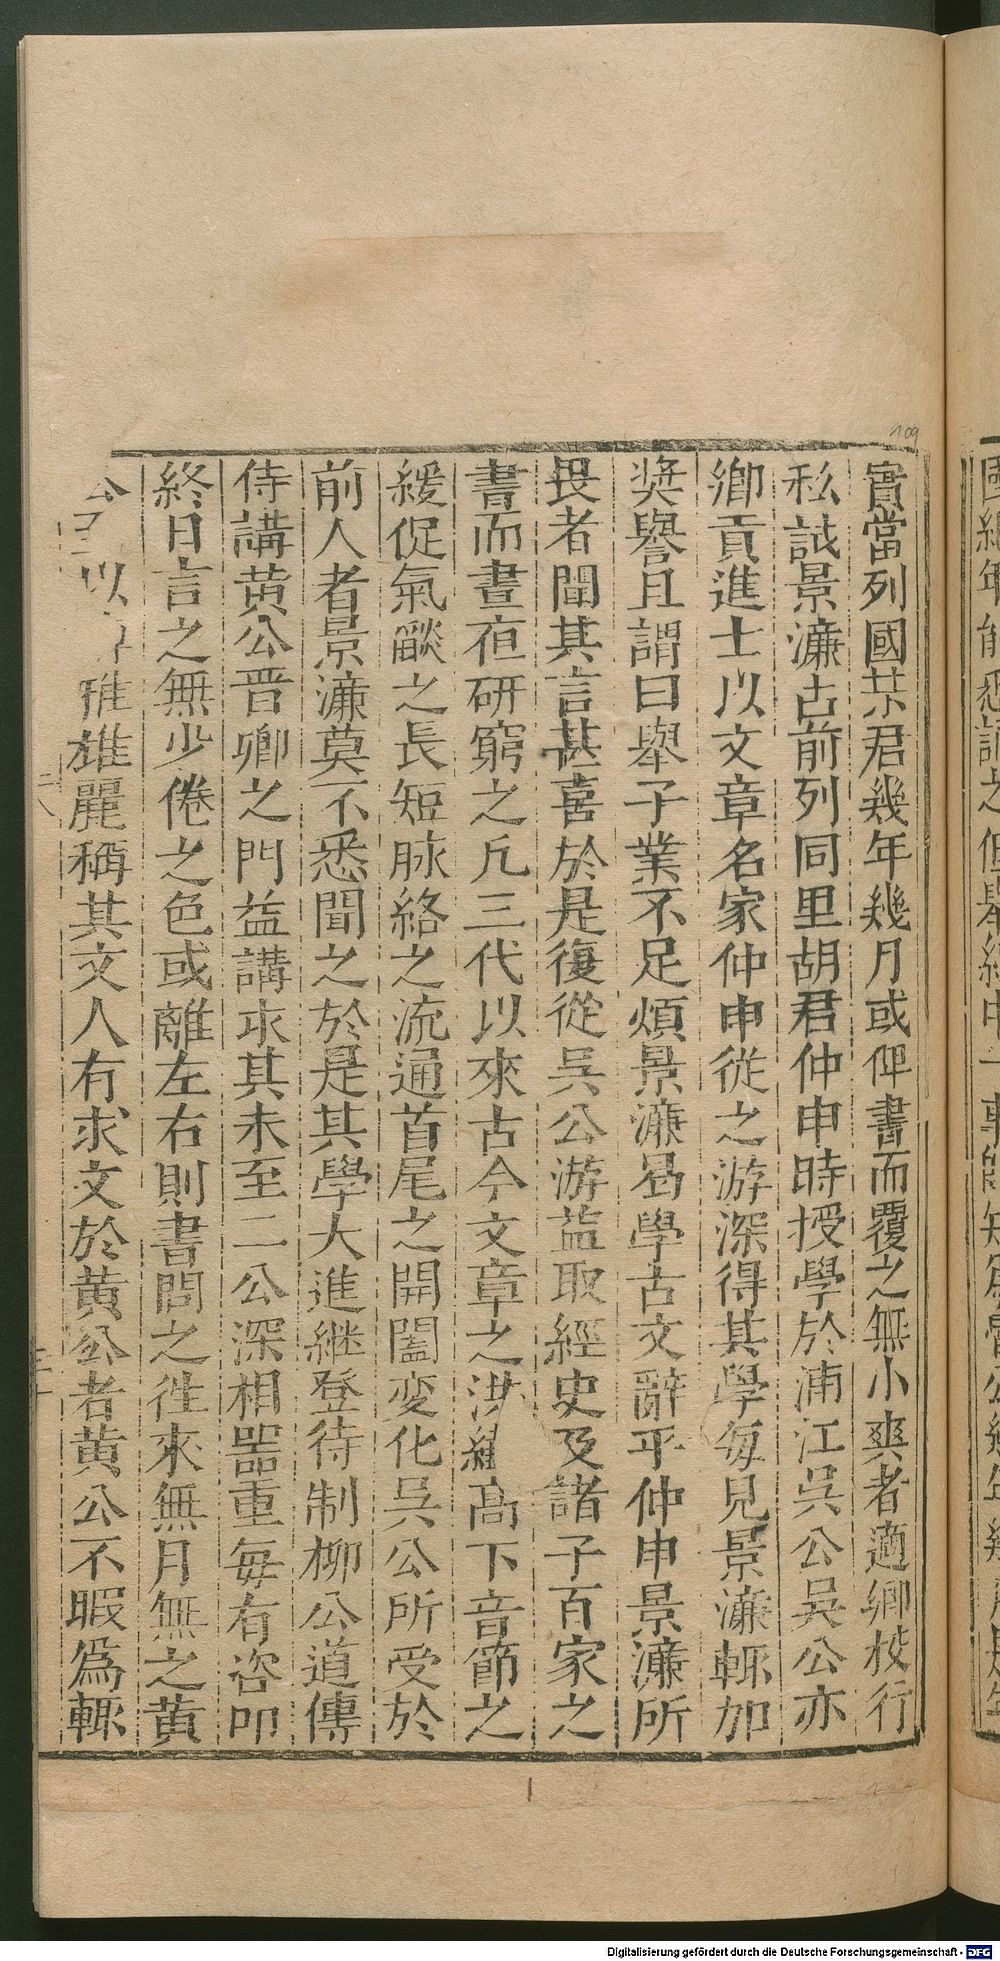 實當列國某君幾年幾月或俾書而覆之無小爽者適鄉校行
私試景濂占前列同里胡君仲申時授學於浦江吳公吳公亦
鄉貢進士以文章名家仲申從之游深得其學每見景濂輒加
奬譽且謂曰舉子業不足煩景濂曷學古文辭乎仲申景濂所
畏者聞其言甚喜於是復從吳公游益取經史及諸子百家之
書而晝夜研窮之凡三代以來古今文章之洪纖高下音節之
緩促氣燄之長短脉絡之流通首尾之開闔变化吳公所受於
前人者景濂莫不悉聞之於是其學大進継登待制柳公道傳
侍講黄公晋卿之門益講求其未至二公深相噐重每有咨叩
終日言之無少倦之色或離左右則書問之徃來無月無之黄
公 以 雅雄麗稱其文人有求文於黄公者黄公不暇為輒
109
Digitalisierung gefördert durch die Deutsche Forschungsgemeinschaft - DFG